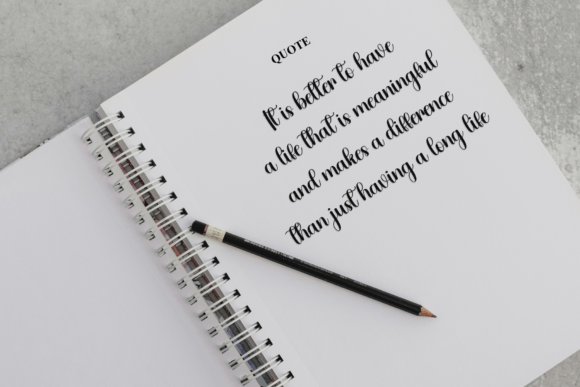 QUOTE
It is better to have
a life that is meaningful
and makes a difference
than just having a long life